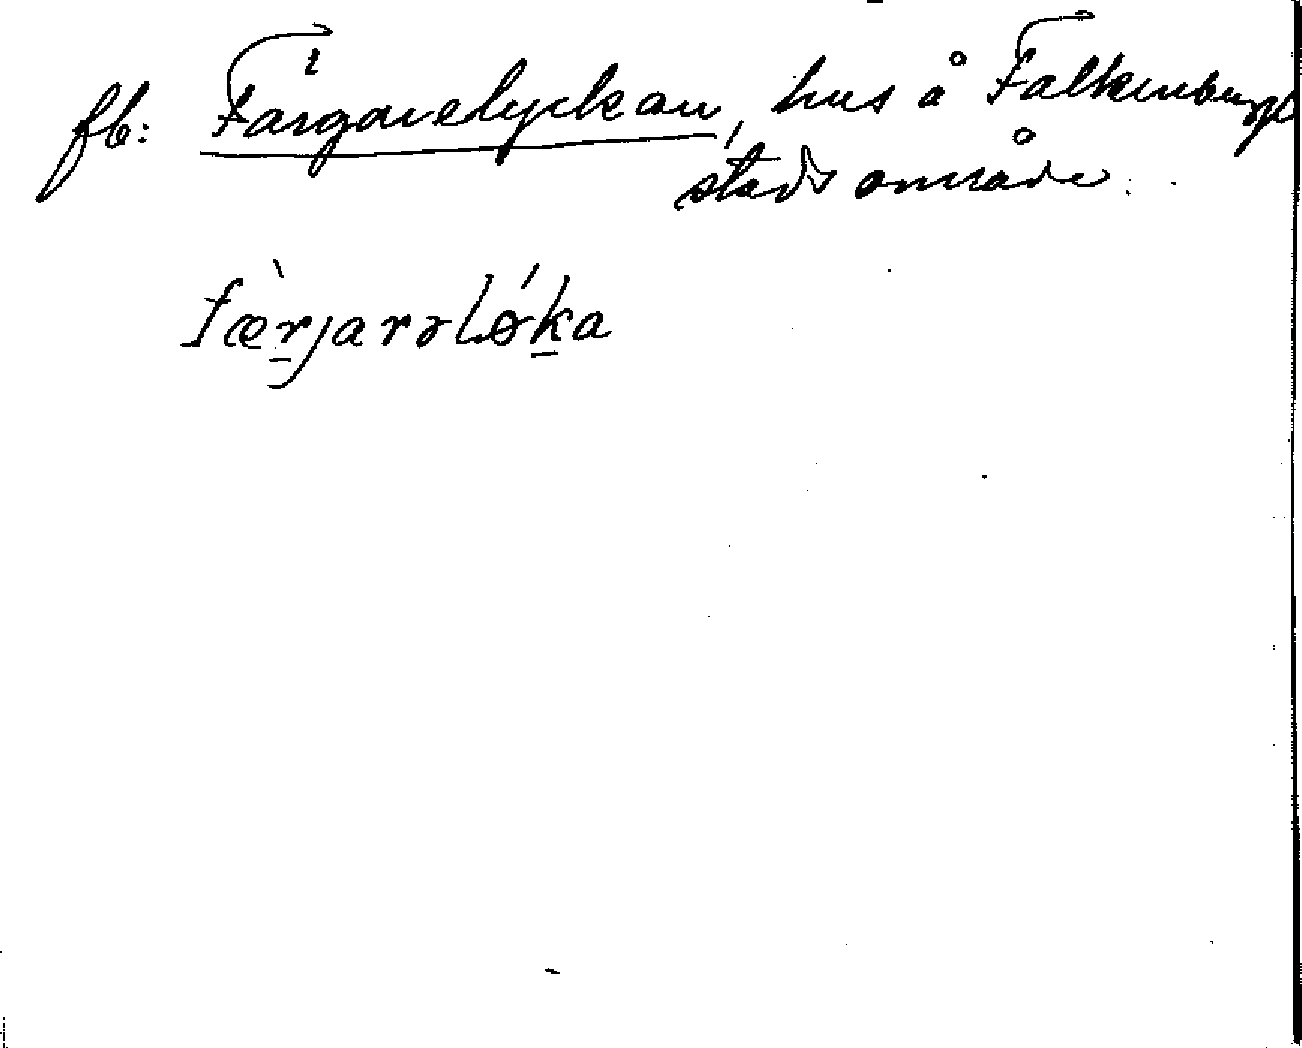 fb: Färgarelyckan, hus å Falkenbergs
stads område.
færjarəløka